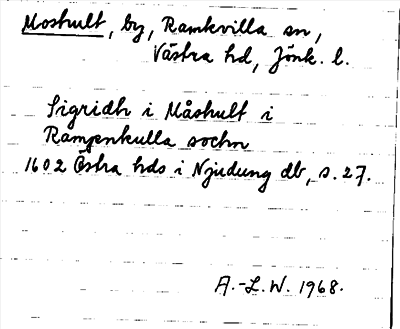 Moshult, by, Ramkvilla sn,
Västra hd, Jönk. l.
Sigridh i Måshult i
Rampenkulla sochn
1602 Östra hds i Njudung db, s. 27.
A.-L.W. 1968.